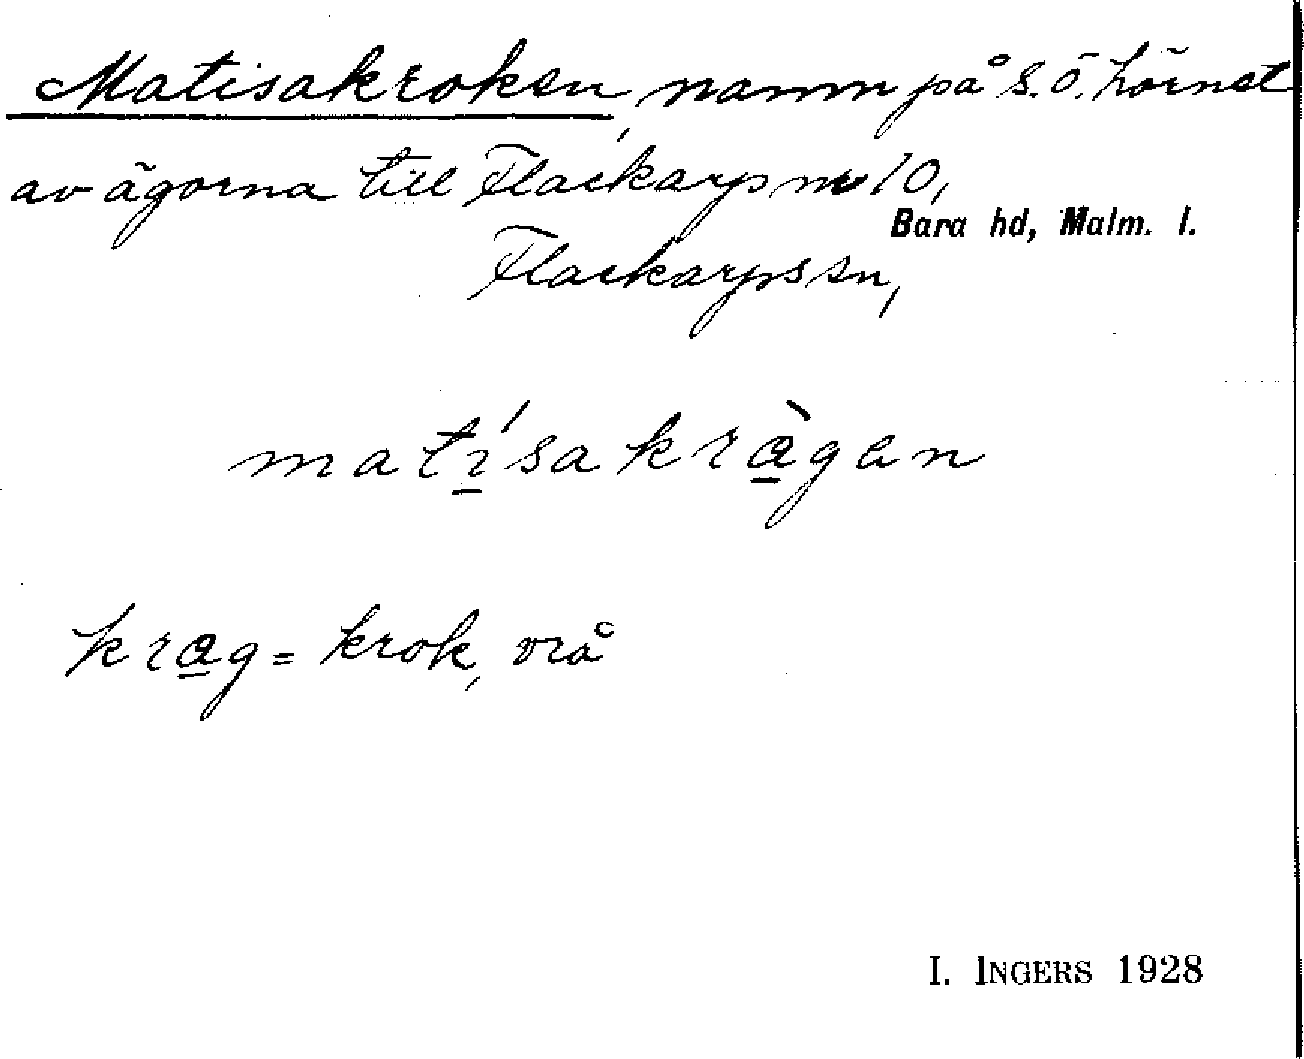 Matisakroken, namn på S.Ö. hörnet
av ägorna till Flackarp nr 10,
Bara hd, Malm. l.
Flackarps sn,
matísakràgen
krag = krok, vrå
I. INGERS 1928